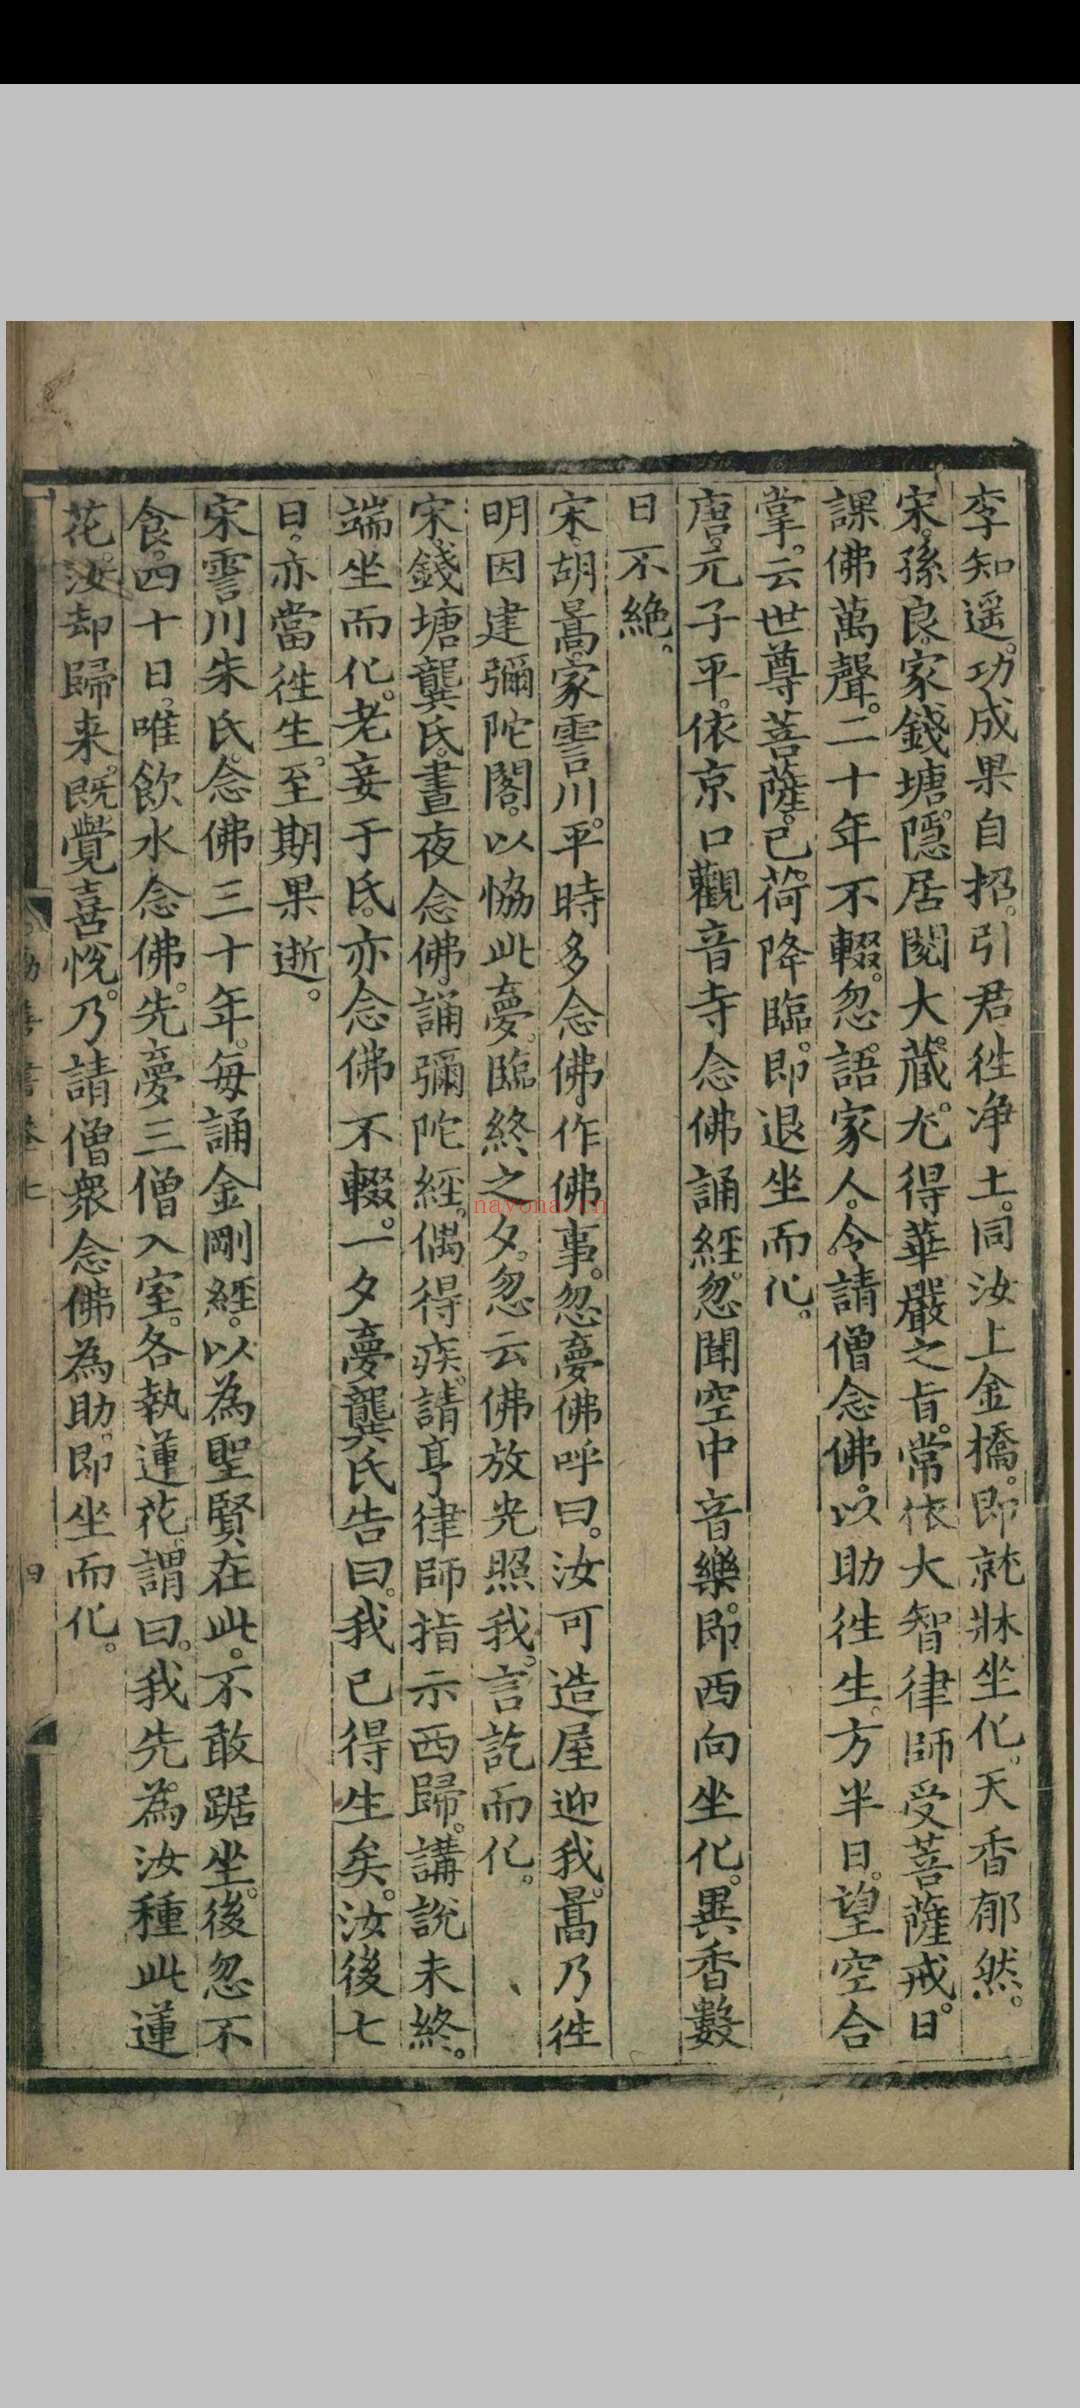 李知遥。功成果自招。引君徃净土。同汝上金橋。即就牀坐化。天香郁然。
宋。孫良。家錢塘。隱居閱大藏。尤得華嚴之旨。常依大智律師受菩薩戒。日
課佛萬聲。二十年不輟。忽語家人。令請僧念佛。以助徃生。方半日。望空合
掌。云世尊菩薩。已荷降臨。即退坐而化。
唐。元子平。依京口觀音寺念佛誦經。忽聞空中音樂。即西向坐化。異香數
日不絶。
宋。胡暠。家霅川。平時多念佛。作佛事。忽夢佛呼曰。汝可造屋迎我。暠乃徃
明因建彌陀閣。以恊此夢。臨終之夕。忽云佛放光照我。言訖而化。
宋。錢塘龔氏。晝夜念佛。誦彌陀經。偶得疾。請亨律師指示西歸。講說未終。
端坐而化。老妾于氏。亦念佛不輟。一夕夢龔氏告曰。我已得生矣。汝後七
日。亦當徃生。至期果逝。
宋霅川朱氏。念佛三十年。每誦金剛經。以為聖賢在此。不敢踞坐。後忽不
食。四十日。唯飲水念佛。先夢三僧入室。各執蓮花。謂曰。我先為汝種此蓮
花。汝却歸来。既覺喜悅。乃請僧衆念佛為助。即坐而化。
nayona.cn